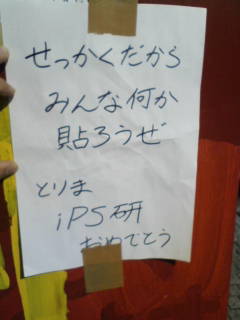 せっかくだから
みんな何か
貼ろうぜ
とりま
iPS研
おめでとう